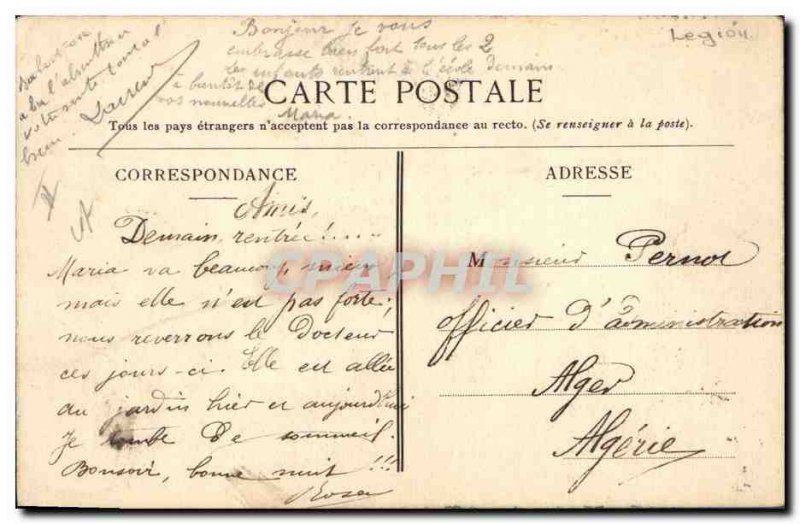 Legion
Bonjour Je vous
embrasse bien fort tous les 2
Les enfants rentrent à l'école demain
à bientôt de
vos nouvelles
Maria.
CARTE POSTALE
Tous les pays étrangers n'acceptent pas la correspondance au recto. (Se renseigner à la poste).
CORRESPONDANCE
Amis,
Demain, rentrée!....
Maria va beaucoup mieux
mais elle n'est pas forte;
nous reverrons le Docteur
ces jours-ci. Elle est allée
au jardin hier et aujourd'hui
Je tombe de sommeil.
Bonsoir, bonne nuit!!!
Rosa
ADRESSE
Monsieur Pernot
officier d'administration
Alger
Algérie
CPAPHIL.COM